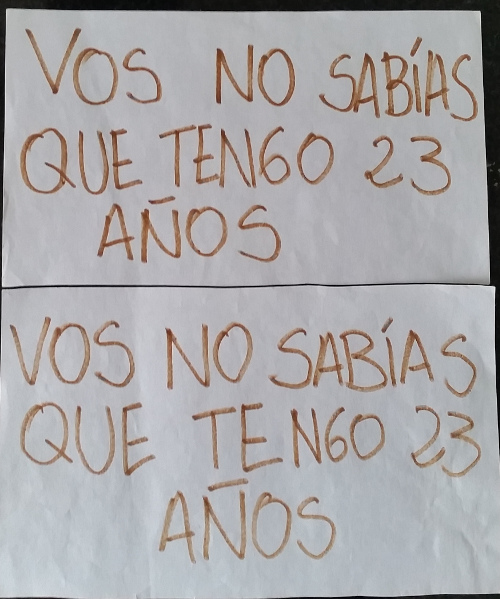 VOS NO SABÍAS
QUE TENGO 23
AÑOS
VOS NO SABÍAS
QUE TENGO 23
AÑOS